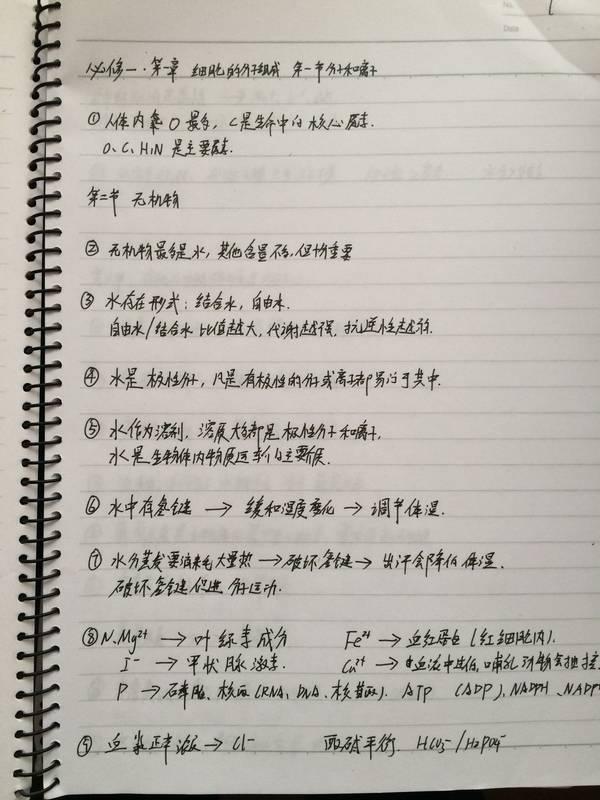 No.
Date
必修一·第一章 细胞的分子组成 第一节分子和离子
① 人体内氧O最多, C是生命中的核心元素.
O、C、H、N 是主要元素.
第二节 无机物
② 无机物最多是水, 其他含量不多, 但十分重要
③ 水存在形式: 结合水, 自由水.
自由水/结合水 比值越大, 代谢越强, 抗逆性越弱.
④ 水是极性分子, 凡是有极性的分子或离子都易溶于其中.
⑤ 水作为溶剂, 溶质大多都是极性分子和离子,
水是生物体内物质运输的主要介质.
⑥ 水中有氢键 → 缓和温度变化 → 调节体温.
⑦ 水分蒸发要消耗大量热 → 破坏氢键 → 出汗会降低体温.
破坏氢键促进分子运动.
⑧ N、Mg²⁺ → 叶绿素成分 Fe²⁺ → 血红蛋白 (红细胞内).
I⁻ → 甲状腺激素. Ca²⁺ → 血液中过低, 哺乳动物会抽搐
P → 磷脂、核酸 (RNA、DNA、核苷酸). ATP (ADP), NADPH、NADP
⑨ 血浆 → Cl⁻ 酸碱平衡. HCO₃⁻/H₂PO₄⁻